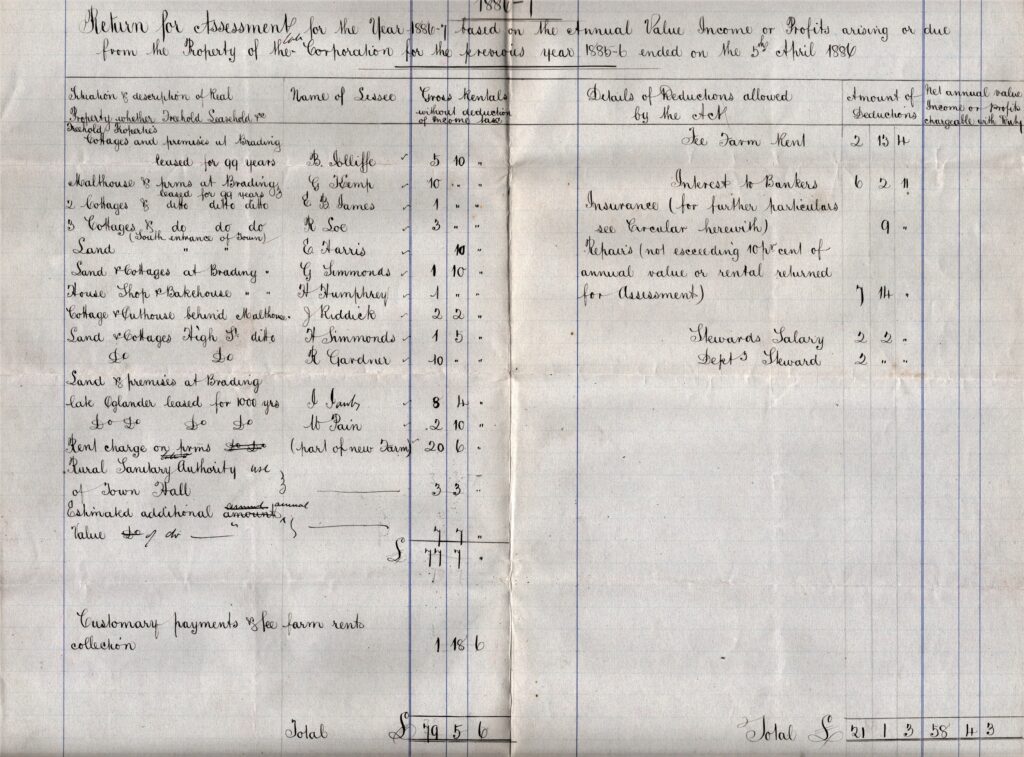 1886-7
Return for Assessment for the Year 1886-7 based on the Annual Value Income or Profits arising or due
from the Property of the late Corporation for the previous year 1885-6 ended on the 5th April 1886
Situation & description of Real
Property whether Freehold Leasehold &c
Name of Lessee
Gross Rentals
without deduction
of Income tax
Details of Reductions allowed
by the Act
Amount of
Deductions
Net annual value
Income or profits
chargeable with Duty
Freehold Properties
Cottages and premises at Brading
leased for 99 years B. Jolliffe 5 10 "
Malthouse & prms at Brading G Kemp 10 " "
leased for 99 years
2 Cottages & ditto ditto ditto E G James 1 " "
3 Cottages & do do do R Loe 3 " "
(South entrance of Town)
Land " " E Harris 10 "
Land & Cottages at Brading " G Simmonds 1 10 "
House Shop & Bakehouse " " H Humphrey 1 " "
Cottage & Outhouse behind Malthouse J Riddick 2 2 "
Land & Cottages High St ditto H Simmonds 1 5 "
Do Do R Gardner 10 " "
Land & premises at Brading
late Oglander leased for 1000 yrs 8 4 "
Do Do Do Do W Pain 2 10 "
Rent charge on prms Do Do (part of new Farm) 20 6 "
Rural Sanitary Authority use
of Town Hall 3 3 "
Estimated additional amount annual
Value Do of do 7 7 "
£ 77 7 "
Customary payments & fee farm rents
collection 1 18 6
Total £ 79 5 6
Fee Farm Rent 2 13 4
Interest to Bankers 6 2 11
Insurance (for further particulars
see Circular herewith) 9 "
Repairs (not exceeding 10 pr cent of
annual value or rental returned
for Assessment) 7 14 "
Stewards Salary 2 2 "
Depty Steward 2 " "
Total £ 21 1 3 58 4 3